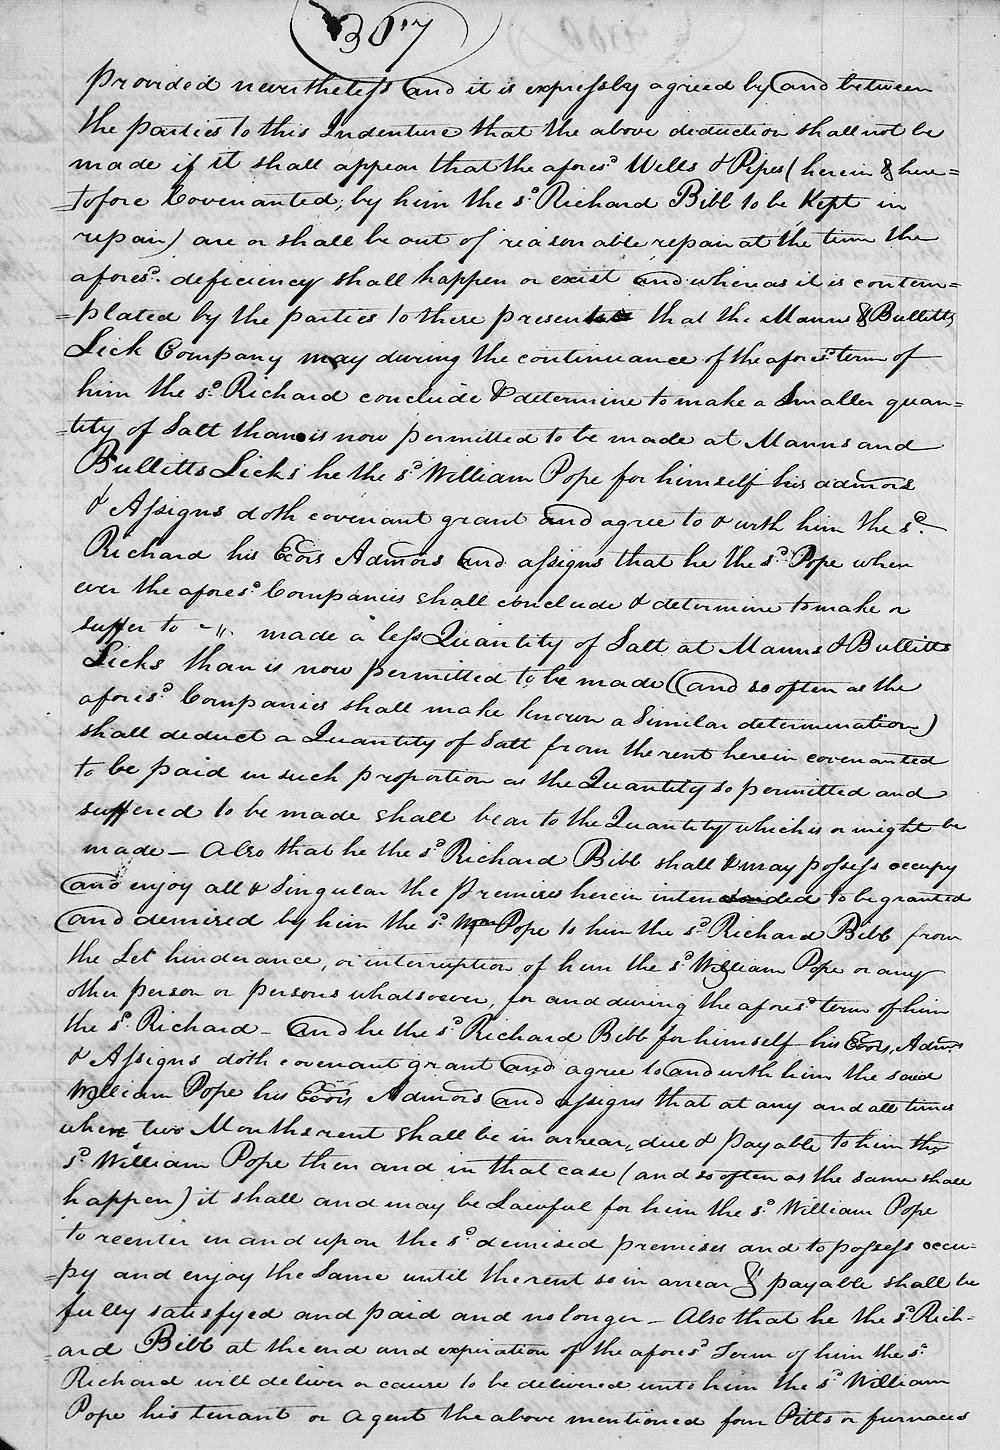 307
provided nevertheless and it is expressly agreed by and between
the parties to this Indenture that the above deduction shall not be
made if it shall appear that the afores.d Wells & Pipes (herein & here=
=tofore Covenanted, by him the s.d Richard Bibb to be Kept in
repair) are or shall be out of reasonable repair at the time the
afores.d deficiency shall happen or exist and whereas it is contem=
=plated by the parties to these presents that the Manns & Bullitts
Lick Company may during the continuance of the afores.d term of
him the s.d Richard conclude & determine to make a Smaller quan=
=tity of Salt than is now permitted to be made at Manns and
Bullitts Licks he the s.d William Pope for himself his admors
& Assigns doth covenant grant and agree to & with him the s.d
Richard his Exors Admors and assigns that he the s.d Pope when
ever the afores.d Companies shall conclude & determine to make or
suffer to -"- made a less Quantity of Salt at Manns & Bullitts
Licks than is now permitted to be made ((and so often as the
afores.d Companies shall make known a Similar determination)
shall deduct a Quantity of Salt from the rent herein covenanted
to be paid in such proportion as the Quantity so permitted and
suffered to be made shall bear to the Quantity which is or might be
made — Also that he the s.d Richard Bibb shall & may possess occupy
and enjoy all & Singular the premises herein intended to be granted
and demised by him the s.d Wm Pope to him the s.d Richard Bibb from
the Let hinderance, or interruption of him the s.d William Pope or any
other person or persons whatsoever, for and during the afores.d term of him
the s.d Richard — and he the s.d Richard Bibb for himself his Exors, Admrs
& Assigns doth covenant grant and agree to and with him the said
William Pope his Exors Admors and assigns that at any and all times
when two Months rent shall be in arrear, due & payable to him the
s.d William Pope then and in that case (and so often as the same shall
happen) it shall and may be Lawful for him the s.d William Pope
to reenter in and upon the s.d demised premises and to possess occu-
=py and enjoy the Same until the rent so in arrear & payable shall be
fully satisfyed and paid and no longer — Also that he the s.d Rich-
=ard Bibb at the end and expiration of the afores.d Term of him the s.d
Richard will deliver or cause to be delivered unto him the s.d William
Pope his tenant or agent the above mentioned four Pitts or furnaces